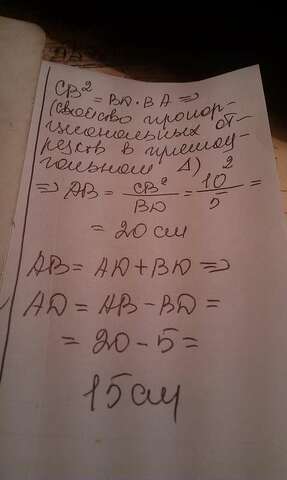 CB² = BD · BA ⇒
(свойство пропор-
циональных от-
резков в прямоу-
гольном Δ)
⇒ AB = CB²/BD = 10²/5 =
= 20 см
AB = AD + BD ⇒
AD = AB - BD =
= 20 - 5 =
15 см